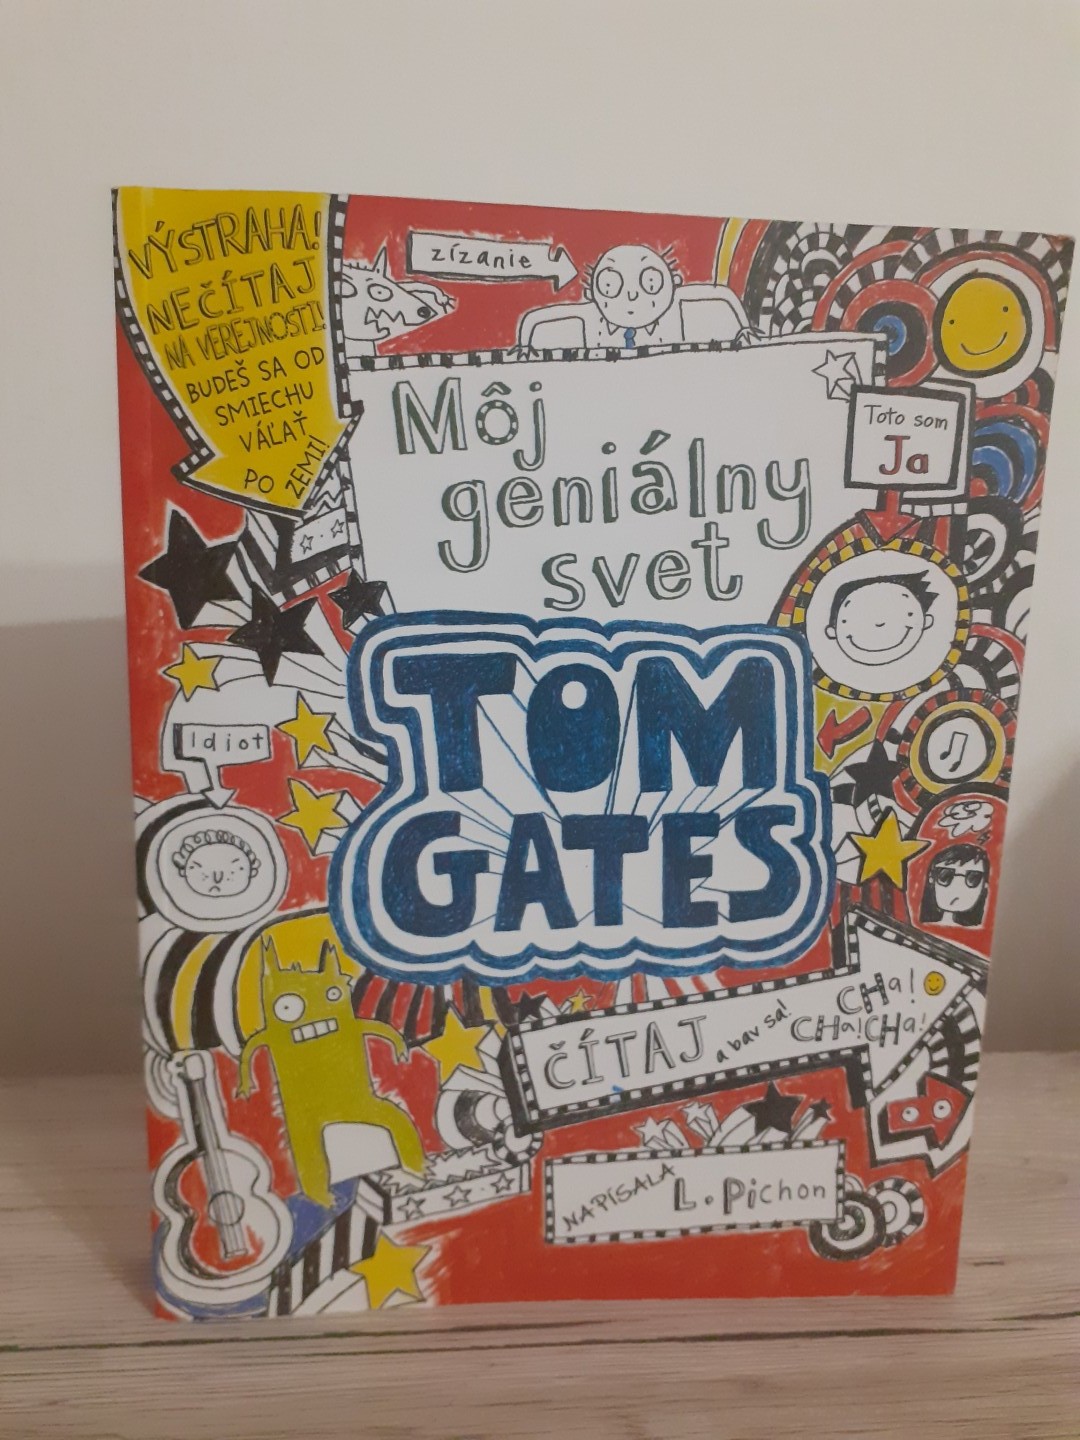 VÝSTRAHA!
NEČÍTAJ
NA VEREJNOSTI!
BUDEŠ SA OD
SMIECHU
VÁĽAŤ
PO ZEMI!
zízanie
Môj
geniálny
svet
Toto som
Ja
TOM
GATES
Idiot
ČÍTAJ a bav sa!
CHa!
CHa!CHa!
NAPÍSALA L. Pichon